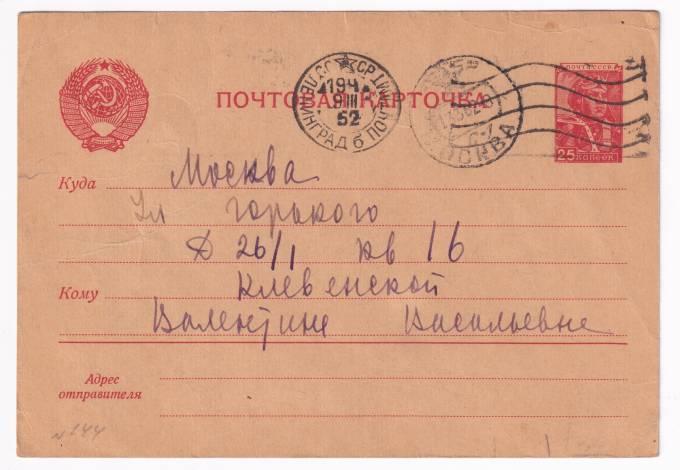 ПОЧТОВАЯ КАРТОЧКА
ЛЕНИНГРАД 6 ПОЧТАМТ
19Ч
9 III
52
МОСКВА
ПОЧТА СССР
25 КОПЕЕК
Куда Москва
Ул Горького
Д 26/1 кв 16
Кому Клевенской
Валентине Васильевне
Адрес
отправителя
N 244